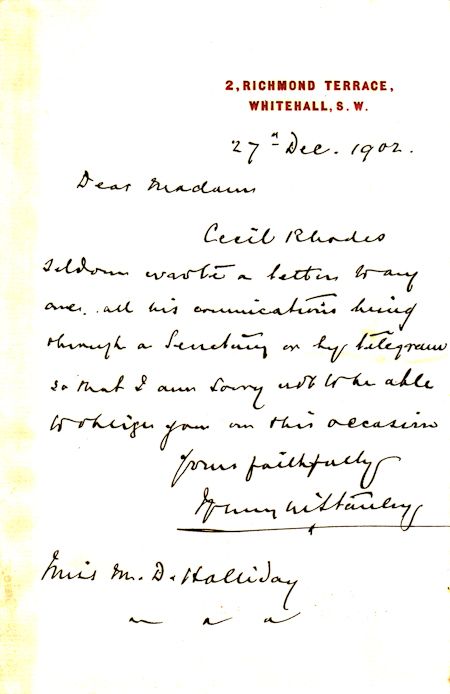 2, RICHMOND TERRACE,
WHITEHALL, S. W.
27th Dec. 1902.
Dear Madam
Cecil Rhodes
seldom wrote a letter to any
one. all his comunications being
through a Secretary or by telegram
so that I am sorry not to be able
to oblige you on this occasion
Yours faithfully
Henry M Stanley
Miss M. D. Halliday